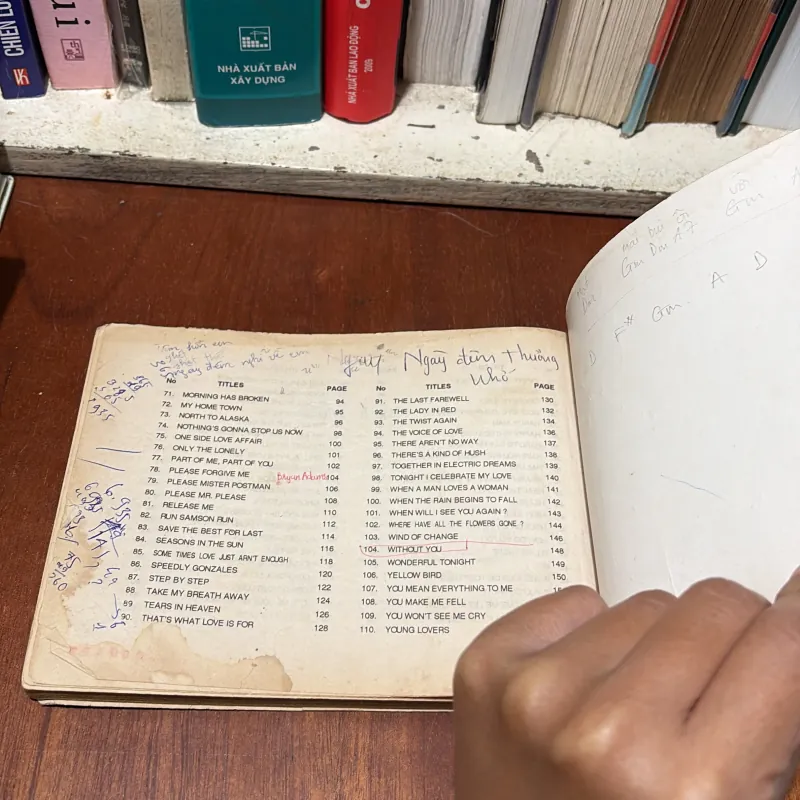 CHIẾN LƯ
NHÀ XUẤT BẢN
XÂY DỰNG
NHÀ XUẤT BẢN LAO ĐỘNG
2005
Ngày đêm thương
nhớ
No TITLES PAGE
71. MORNING HAS BROKEN 94
72. MY HOME TOWN 95
73. NORTH TO ALASKA 96
74. NOTHING'S GONNA STOP US NOW 98
75. ONE SIDE LOVE AFFAIR 100
76. ONLY THE LONELY 101
77. PART OF ME, PART OF YOU 102
78. PLEASE FORGIVE ME Bryan Adams 104
79. PLEASE MISTER POSTMAN 106
80. PLEASE MR. PLEASE 108
81. RELEASE ME 110
82. RUN SAMSON RUN 112
83. SAVE THE BEST FOR LAST 114
84. SEASONS IN THE SUN 116
85. SOME TIMES LOVE JUST ARN'T ENOUGH 118
86. SPEEDLY GONZALES 120
87. STEP BY STEP 122
88. TAKE MY BREATH AWAY 124
89 TEARS IN HEAVEN 126
90. THAT'S WHAT LOVE IS FOR 128
No TITLES PAGE
91. THE LAST FAREWELL 130
92. THE LADY IN RED 132
93. THE TWIST AGAIN 134
94. THE VOICE OF LOVE 136
95. THERE AREN'T NO WAY 137
96. THERE'S A KIND OF HUSH 138
97. TOGETHER IN ELECTRIC DREAMS 139
98. TONIGHT I CELEBRATE MY LOVE 140
99. WHEN A MAN LOVES A WOMAN 141
100. WHEN THE RAIN BEGINS TO FALL 142
101. WHEN WILL I SEE YOU AGAIN ? 143
102. WHERE HAVE ALL THE FLOWERS GONE ? 144
103. WIND OF CHANGE 146
104. WITHOUT YOU 148
105. WONDERFUL TONIGHT 149
106. YELLOW BIRD 150
107. YOU MEAN EVERYTHING TO ME
108. YOU MAKE ME FELL
109. YOU WON'T SEE ME CRY
110. YOUNG LOVERS
D F# Gm A D